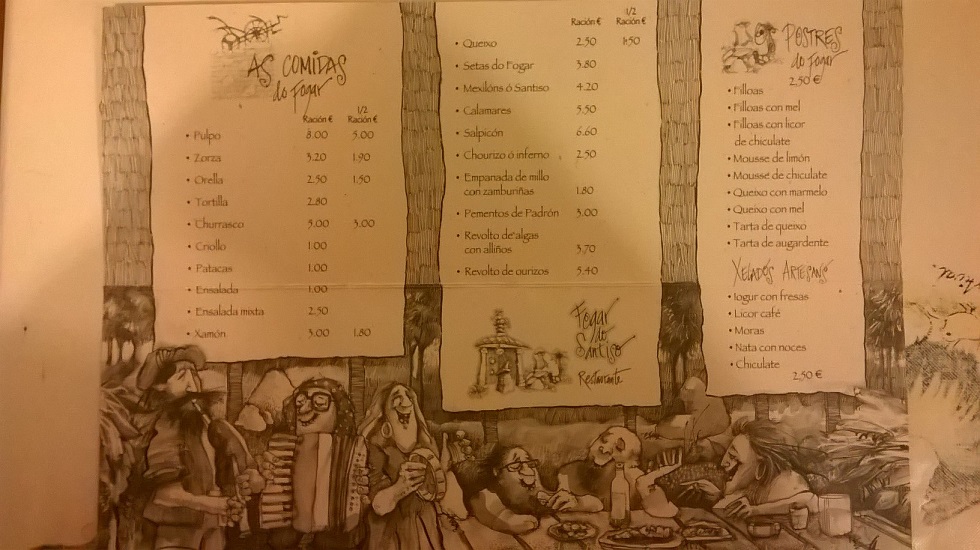 AS COMIDAS
do Fogar
Ración € 1/2 Ración €
• Pulpo 8.00 5.00
• Zorza 3.20 1.90
• Orella 2.50 1.50
• Tortilla 2.80
• Churrasco 5.00 3.00
• Criollo 1.00
• Patacas 1.00
• Ensalada 1.00
• Ensalada mixta 2.50
• Xamón 3.00 1.80
Ración € 1/2 Ración €
• Queixo 2.50 1.50
• Setas do Fogar 3.80
• Mexilóns ó Santiso 4.20
• Calamares 3.50
• Salpicón 6.60
• Chourizo ó inferno 2.50
• Empanada de millo
con zamburiñas 1.80
• Pementos de Padrón 3.00
• Revolto de algas
con alliños 3.70
• Revolto de ourizos 5.40
Fogar
do
Santiso
Restaurante
POSTRES
do Fogar
2,50 €
• Filloas
• Filloas con mel
• Filloas con licor
de chiculate
• Mousse de limón
• Mousse de chiculate
• Queixo con marmelo
• Queixo con mel
• Tarta de queixo
• Tarta de augardente
XELADOS ARTESANS
• Iogur con fresas
• Licor café
• Moras
• Nata con noces
• Chiculate
2,50 €